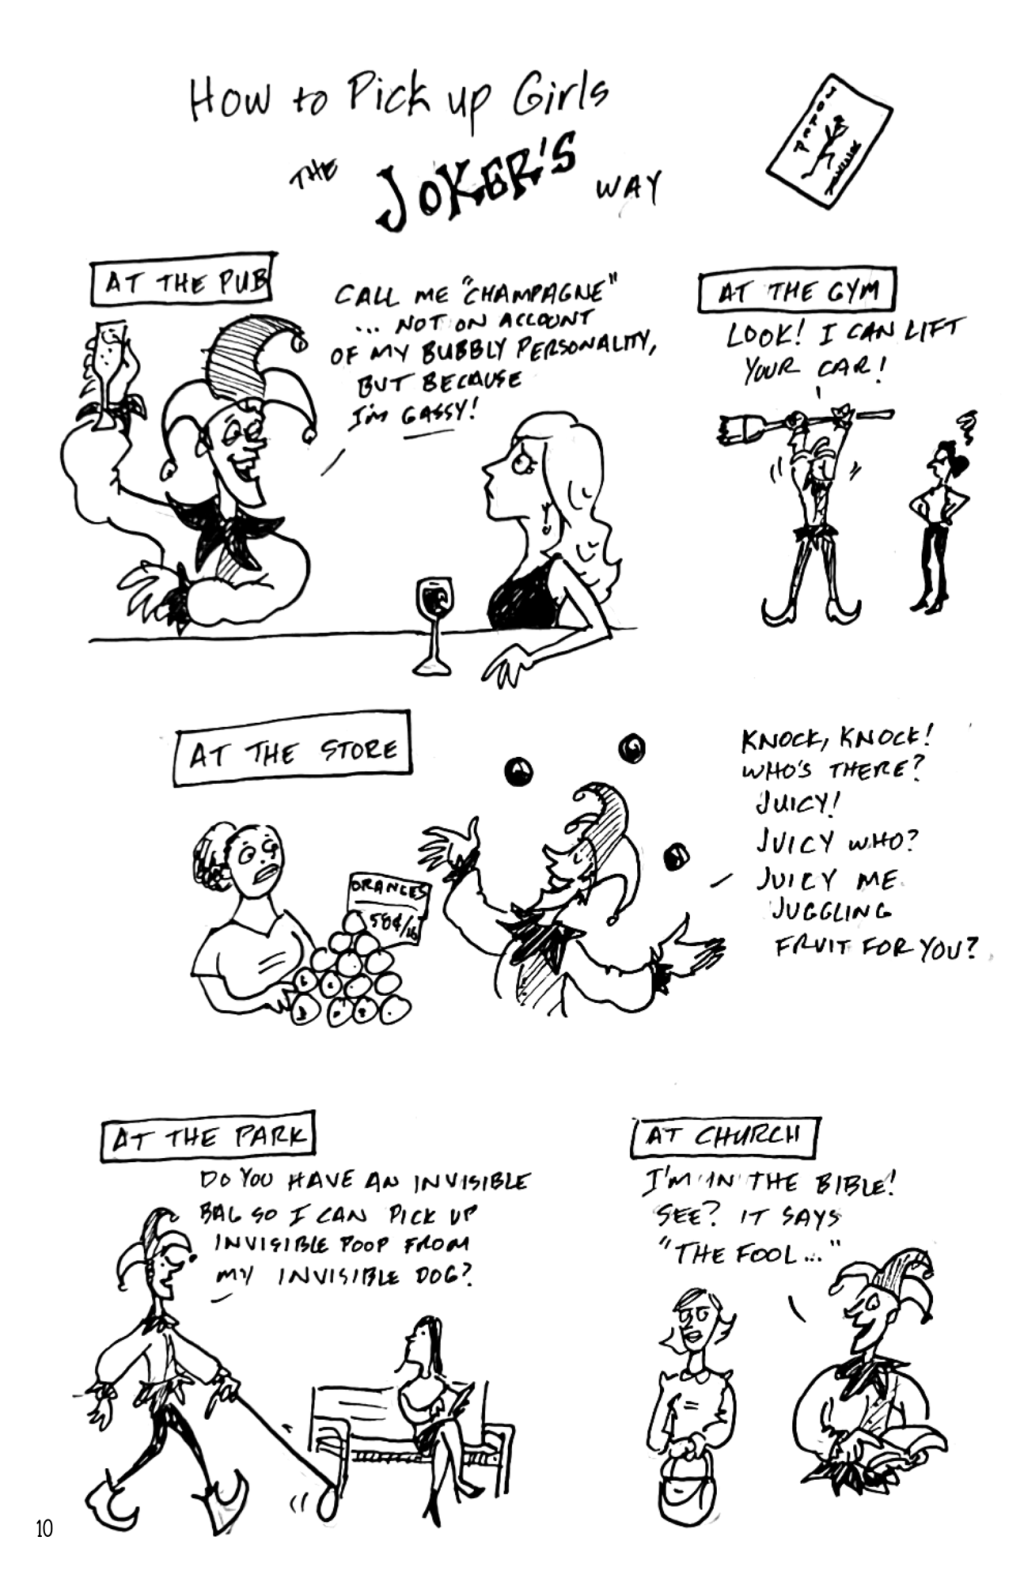 How to Pick up Girls
THE JOKER'S WAY
JOKER
AT THE PUB
CALL ME "CHAMPAGNE"
... NOT ON ACCOUNT
OF MY BUBBLY PERSONALITY,
BUT BECAUSE
I'M GASSY!
AT THE GYM
LOOK! I CAN LIFT
YOUR CAR!
AT THE STORE
KNOCK, KNOCK!
WHO'S THERE?
JUICY!
JUICY WHO?
JUICY ME
JUGGLING
FRUIT FOR YOU?
ORANGES
50¢/lb
AT THE PARK
DO YOU HAVE AN INVISIBLE
BAG SO I CAN PICK UP
INVISIBLE POOP FROM
MY INVISIBLE DOG?
AT CHURCH
I'M IN THE BIBLE!
SEE? IT SAYS
"THE FOOL..."
10